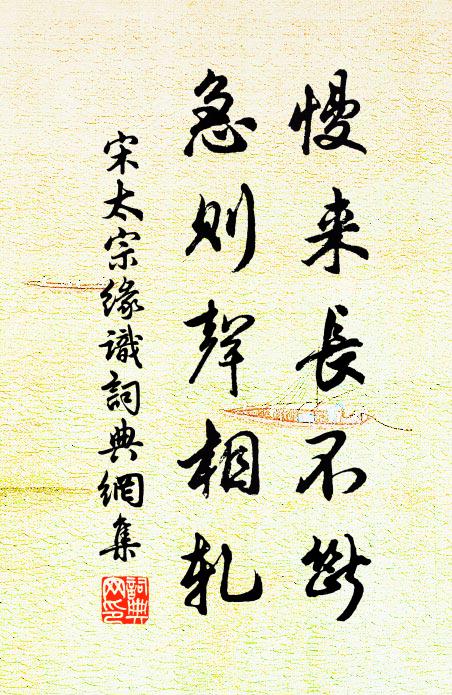 慢来長不斷
急則聲相軋
宋太宗緣識詞典網集
詞典网印